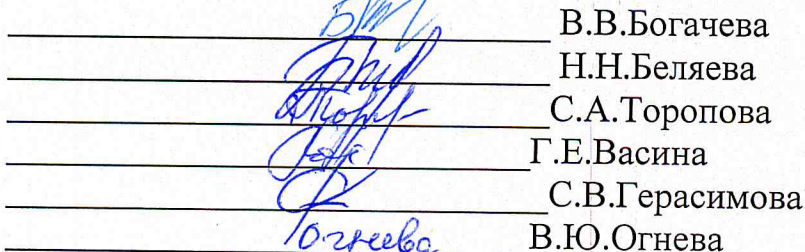 В.В.Богачева
Н.Н.Беляева
С.А.Торопова
Г.Е.Васина
С.В.Герасимова
Огнева В.Ю.Огнева